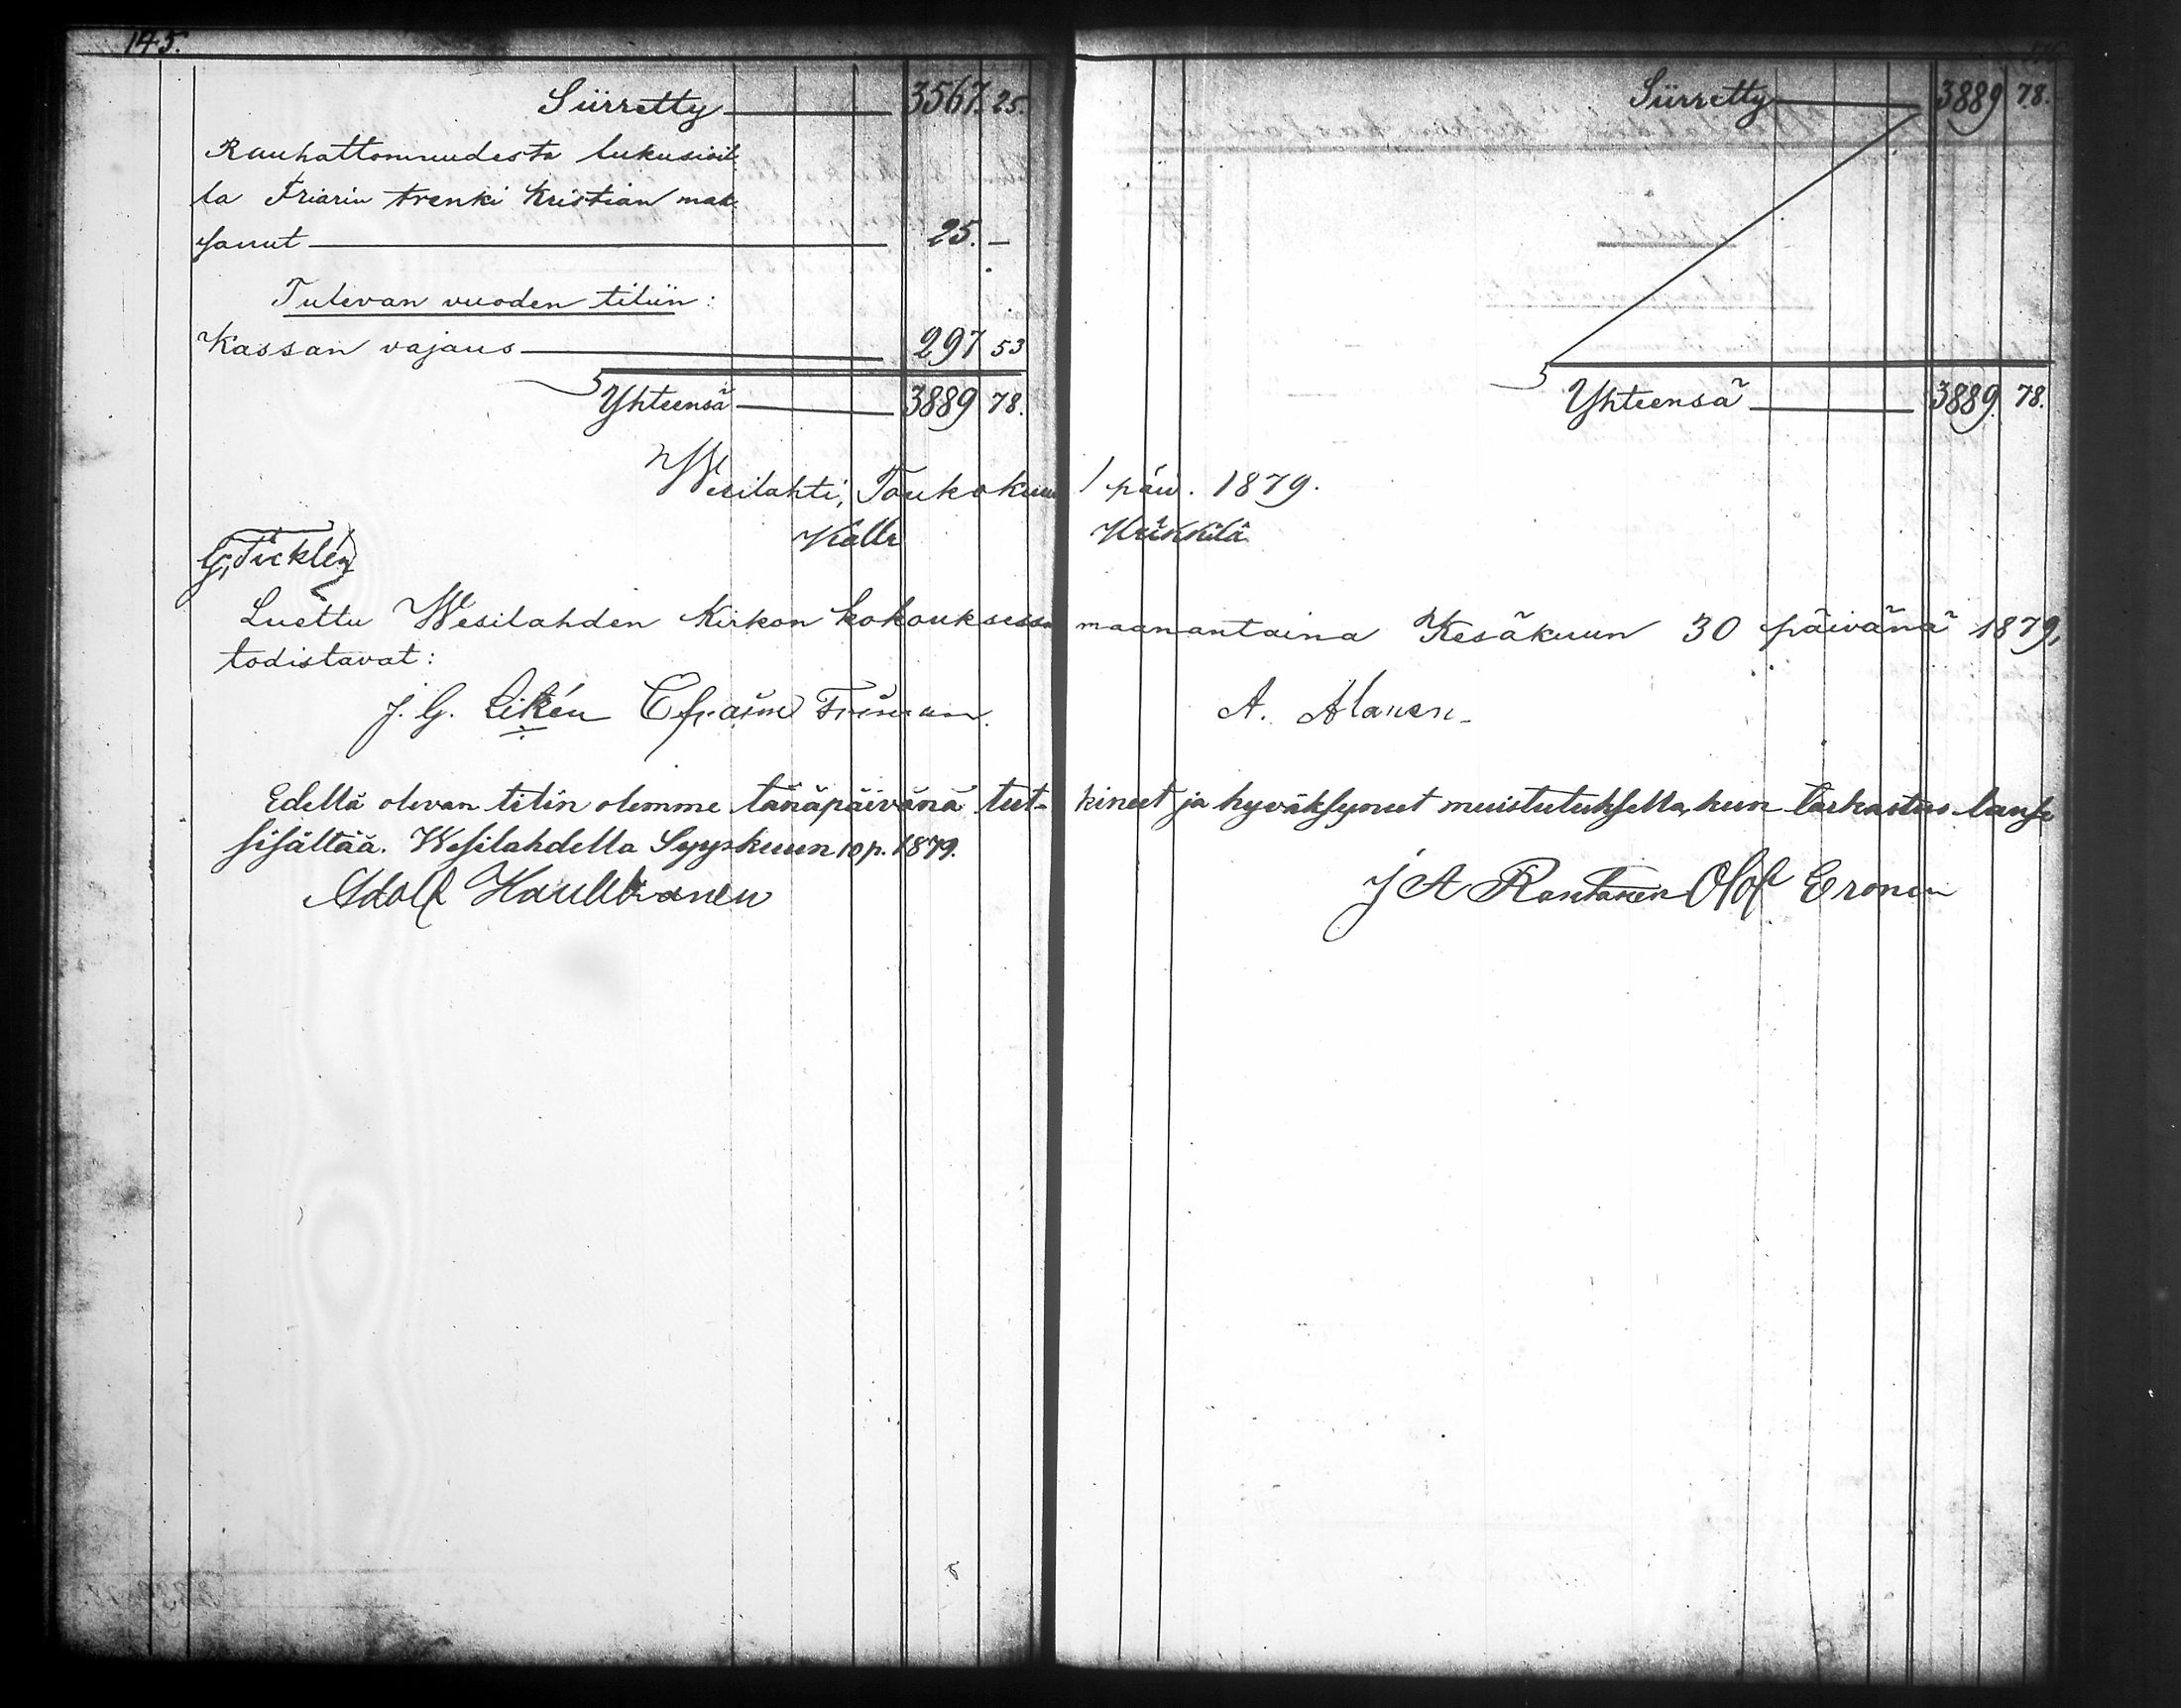 145.
Siirretty 3567. 25.
Rauhattomuudesta lukusioil
ta Friarin trenki Kristian mak
sanut 25. —
Tulevan vuoden tiliin:
Kassan vajaus 297 53
Yhteensä 3889 78.
Siirretty 3889 78.
Yhteensä 3889. 78.
Wesilahti, Toukokuun 1 päiv. 1879.
Kalle Krikkilä
G. Ticklén
Luettu Wesilahden Kirkon kokouksessa maanantaina Kesäkuun 30 päivänä 1879,
todistavat:
J. G. Likén Efraim A. Alanen
Edellä olevan tilin olemme tänäpäivänä tut- kineet ja hyväksyneet muistutuksella, kun tarkastus lause
sisältää. Wesilahdella Syyskuun 10 p. 1879.
Adolf J A Rantanen Olof Eronen